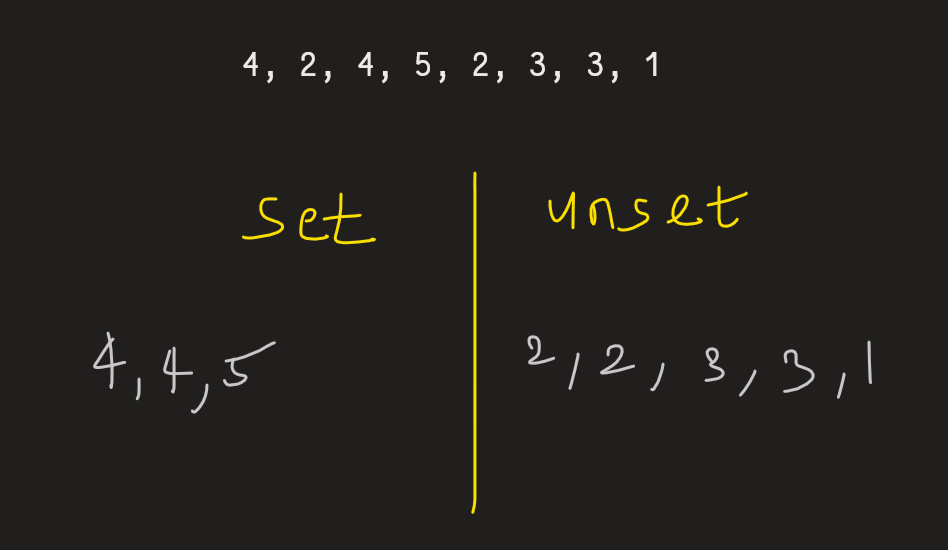 4, 2, 4, 5, 2, 3, 3, 1
set
unset
4, 4, 5
2, 2, 3, 3, 1